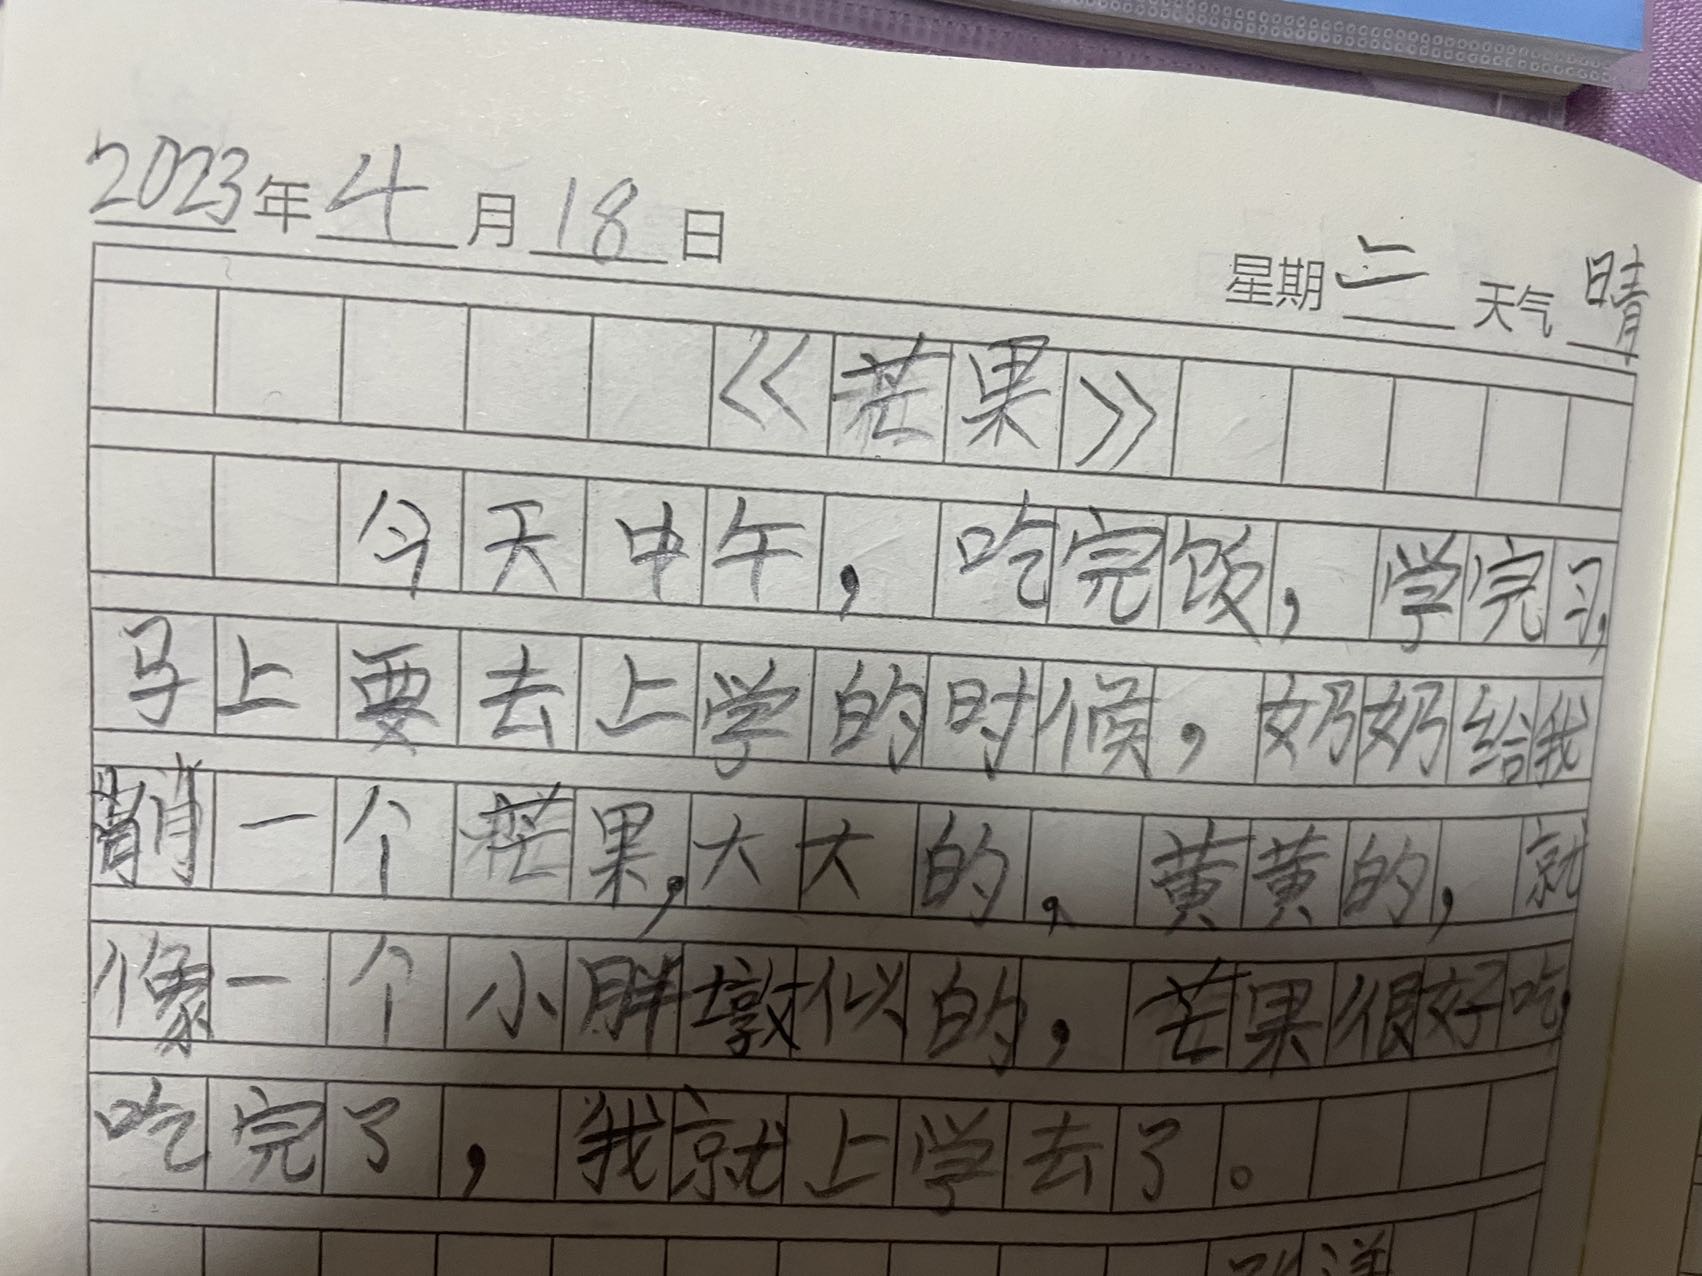 2023年4月18日 星期二 天气晴
《芒果》
今天中午，吃完饭，学完习，
马上要去上学的时候，奶奶给我
削一个芒果，大大的，黄黄的，就
像一个小胖墩似的，芒果很好吃，
吃完了，我就上学去了。